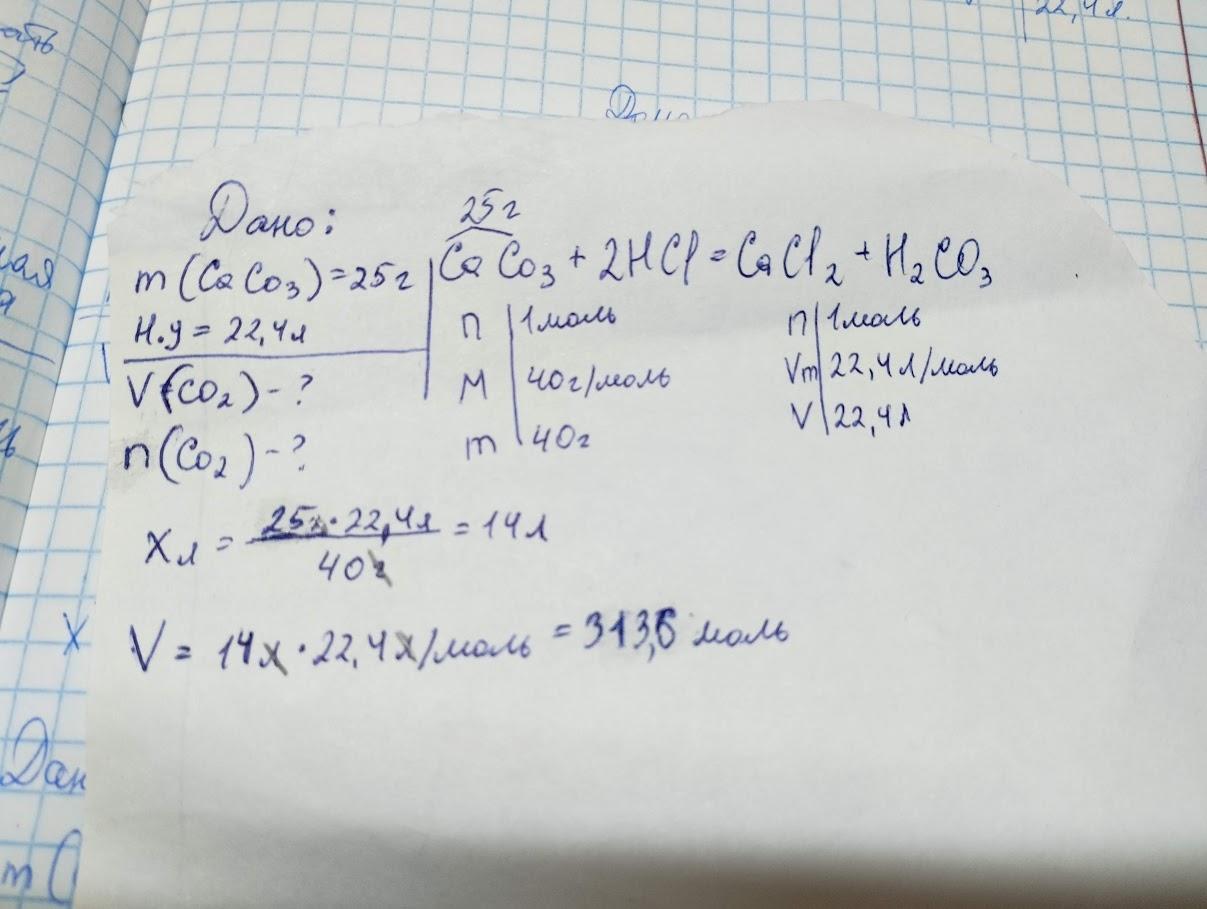 22,4л.
Дано:
m(CaCo3)=25г
Н.у = 22,4л
V(CO2) - ?
n(Co2) - ?
25г
CaCo3 + 2HCl = CaCl2 + H2CO3
n | 1моль
M | 40г/моль
m | 40г
n | 1моль
Vm | 22,4л/моль
V | 22,4л
Xл = 25г · 22,4л / 40г = 14л
V = 14л · 22,4л/моль = 313,6 моль
Дан
m(